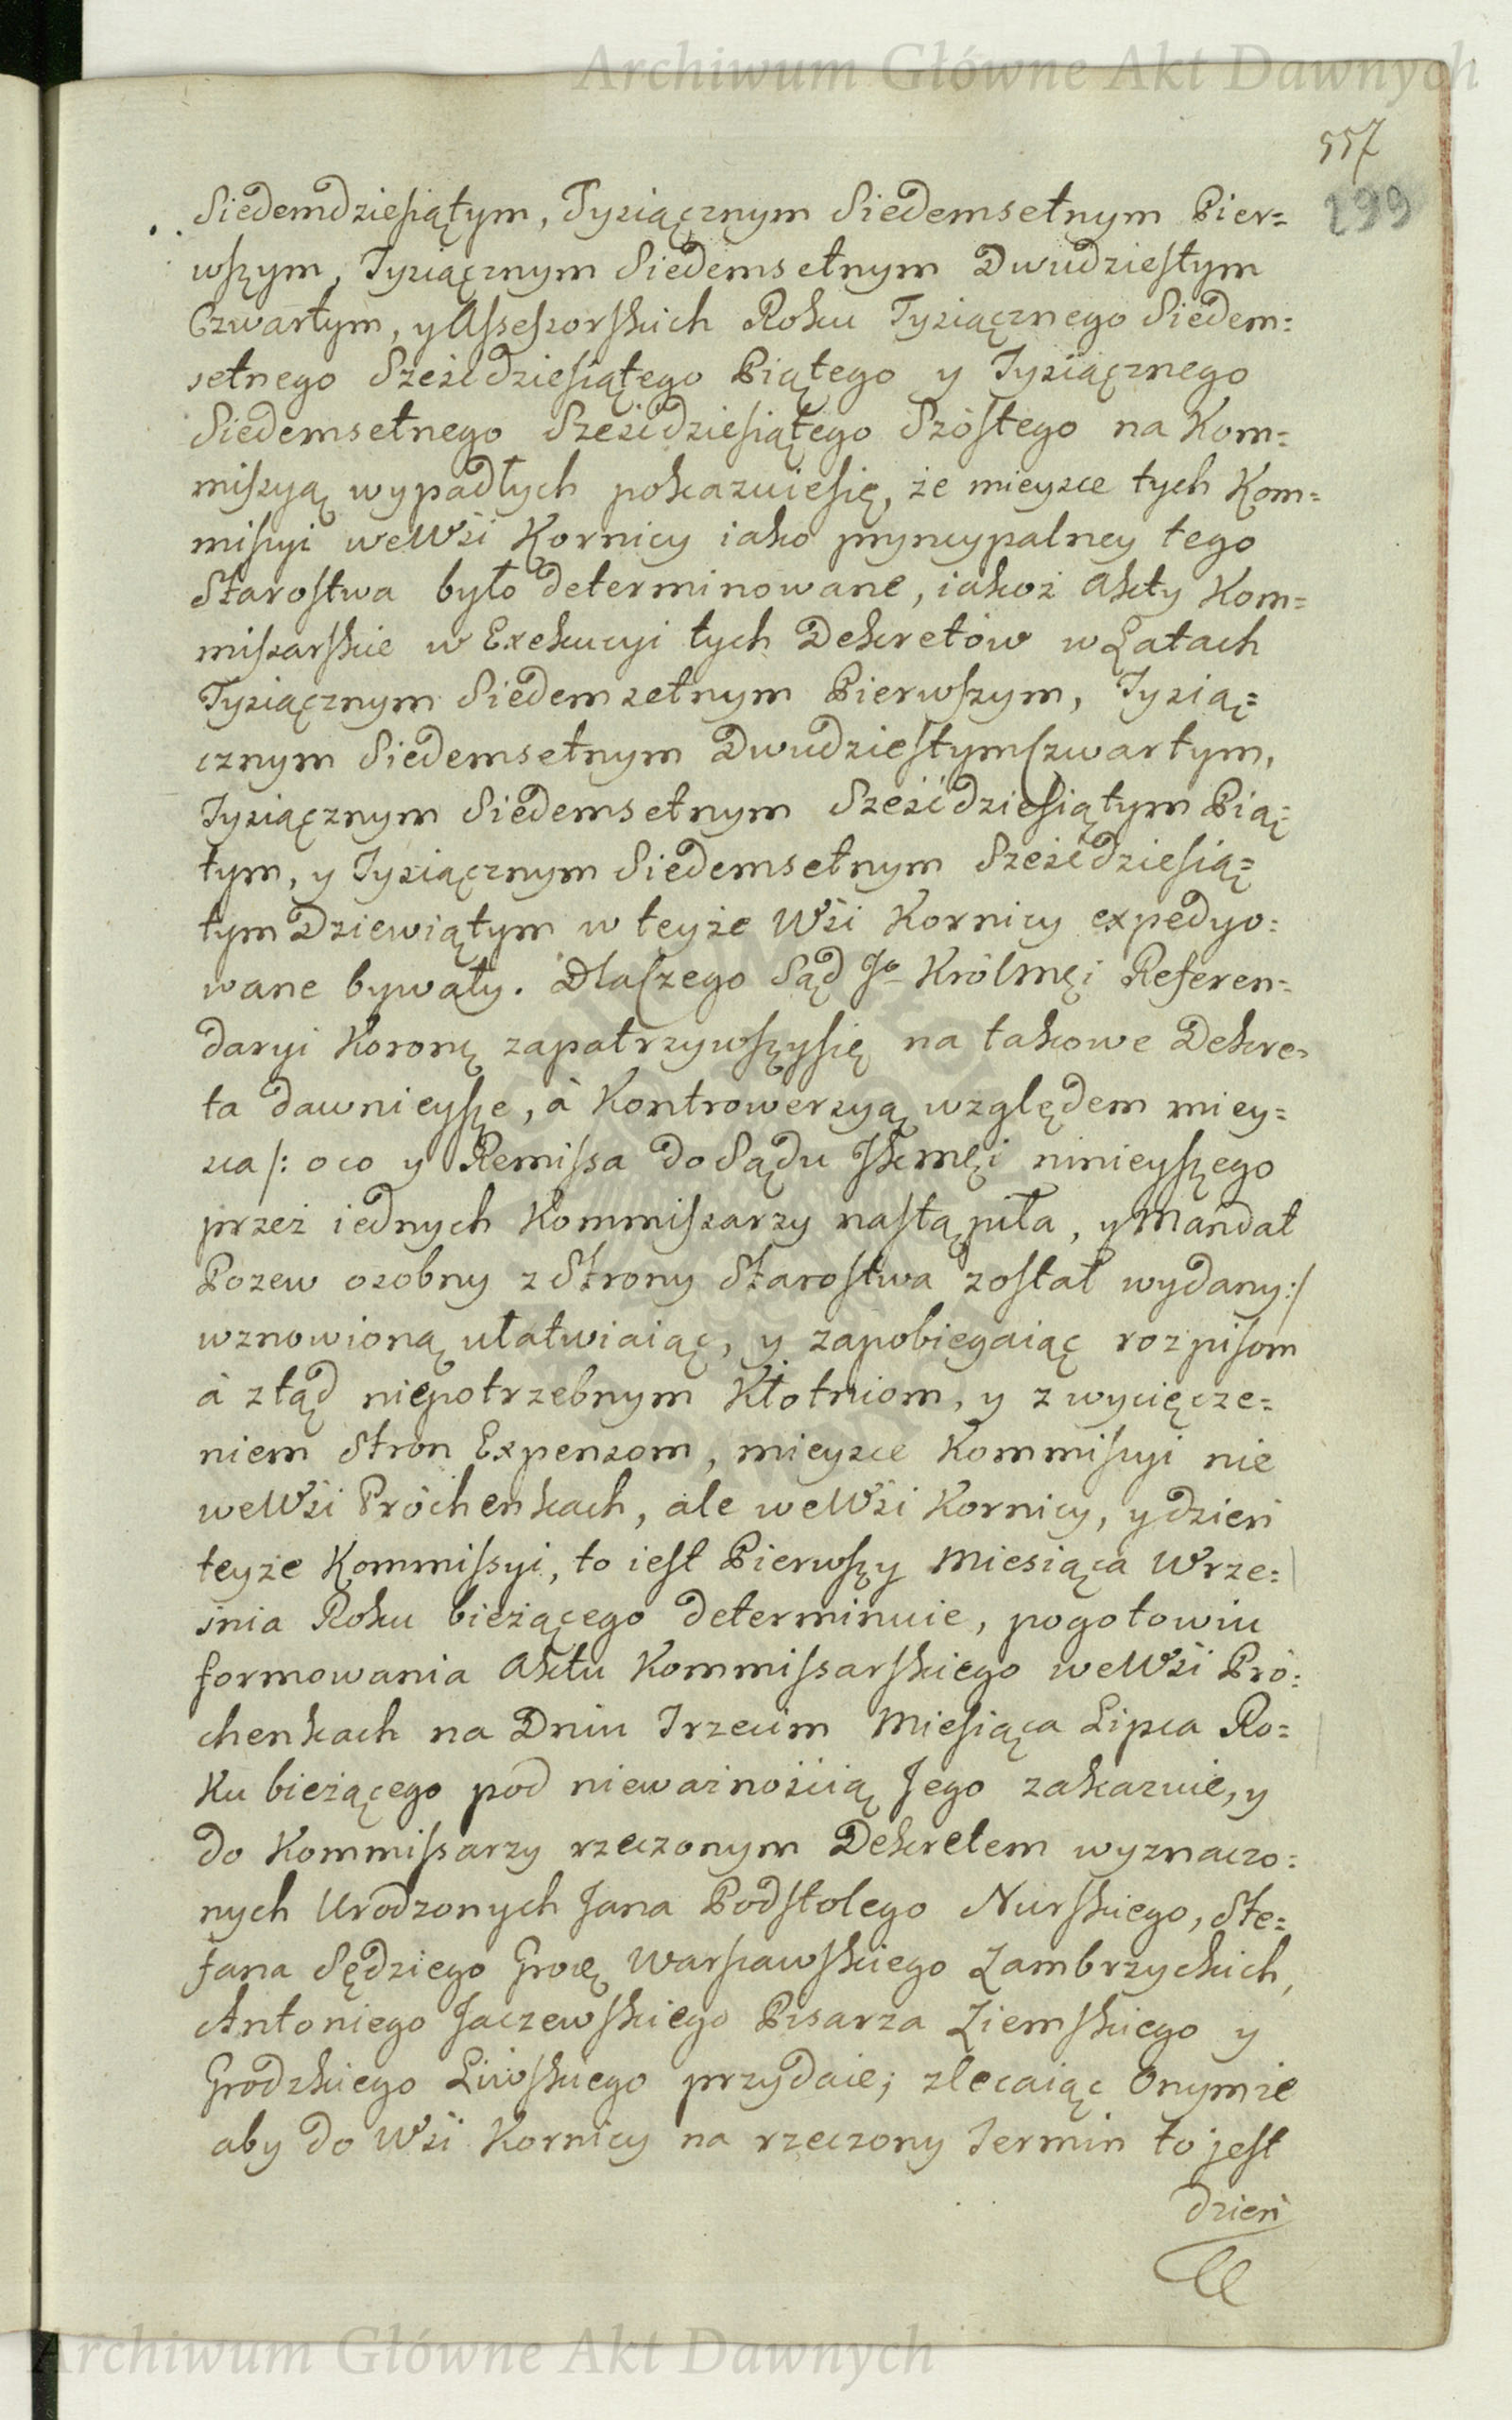 Archiwum Główne Akt Dawnych
557
299
Siedemdziesiątym, Tysiącznym Siedemsetnym Pier=
wszym, Tysiącznym Siedemsetnym Dwudziestym
Czwartym, y Assessorskich Roku Tysiącznego Siedem=
setnego Sześćdziesiątego Piątego y Tysiącznego
Siedemsetnego Sześćdziesiątego Szóstego na Kom=
missyą wypadłych pokazuiesię, że mieysce tych Kom=
missyi weWsi Kornicy iako pryncypalney tego
Starostwa było determinowane, iakoż Akty Kom=
missarskie w Exekucyi tych Dekretów w Latach
Tysiącznym Siedemsetnym Pierwszym, Tysią=
cznym Siedemsetnym Dwudziestym Czwartym,
Tysiącznym Siedemsetnym Sześćdziesiątym Pią=
tym, y Tysiącznym Siedemsetnym Sześćdziesią=
tym Dziewiątym w teyże Wsi Kornicy expedyo=
wane bywały. Dlaczego Sąd Jo Królmci Referen=
daryi Koronn zapatrzywszysię na takowe Dekre=
ta dawnieysze, à Kontrowersyą względem miey=
sca /: oco y Remissa do Sądu Jkmci ninieyszego
przez iednych Kommissarzy nastąpiła, y Mandat
Pozew osobny z Strony Starostwa został wydany :/
wznowioną ułatwiaiąc, y zapobiegaiąc rozpisom
à ztąd niepotrzebnym Kłotniom, y z wycięcze=
niem Stron Expensom, mieysce Kommissyi nie
weWsi Próchenkach, ale weWsi Kornicy, y dzień
teyże Kommissyi, to iest Pierwszy Miesiąca Wrze=
śnia Roku bieżącego determinuie, pogotowiu
formowania Aktu Kommissarskiego weWsi Pró=
chenkach na Dniu Trzecim Miesiąca Lipca Ro=
ku bieżącego pod nieważnością Jego zakazuie, y
do Kommissarzy rzeczonym Dekretem wyznaczo=
nych Urodzonych Jana Podstolego Nurskiego, Ste=
fana Sędziego Grodz Warszawskiego Zambrzyckich,
Antoniego Jaczewskiego Pisarza Ziemskiego y
Grodzkiego Liwskiego przydaie; zlecaiąc Onymże
aby do Wsi Kornicy na rzeczony Termin to jest
dzień
Archiwum Główne Akt Dawnych